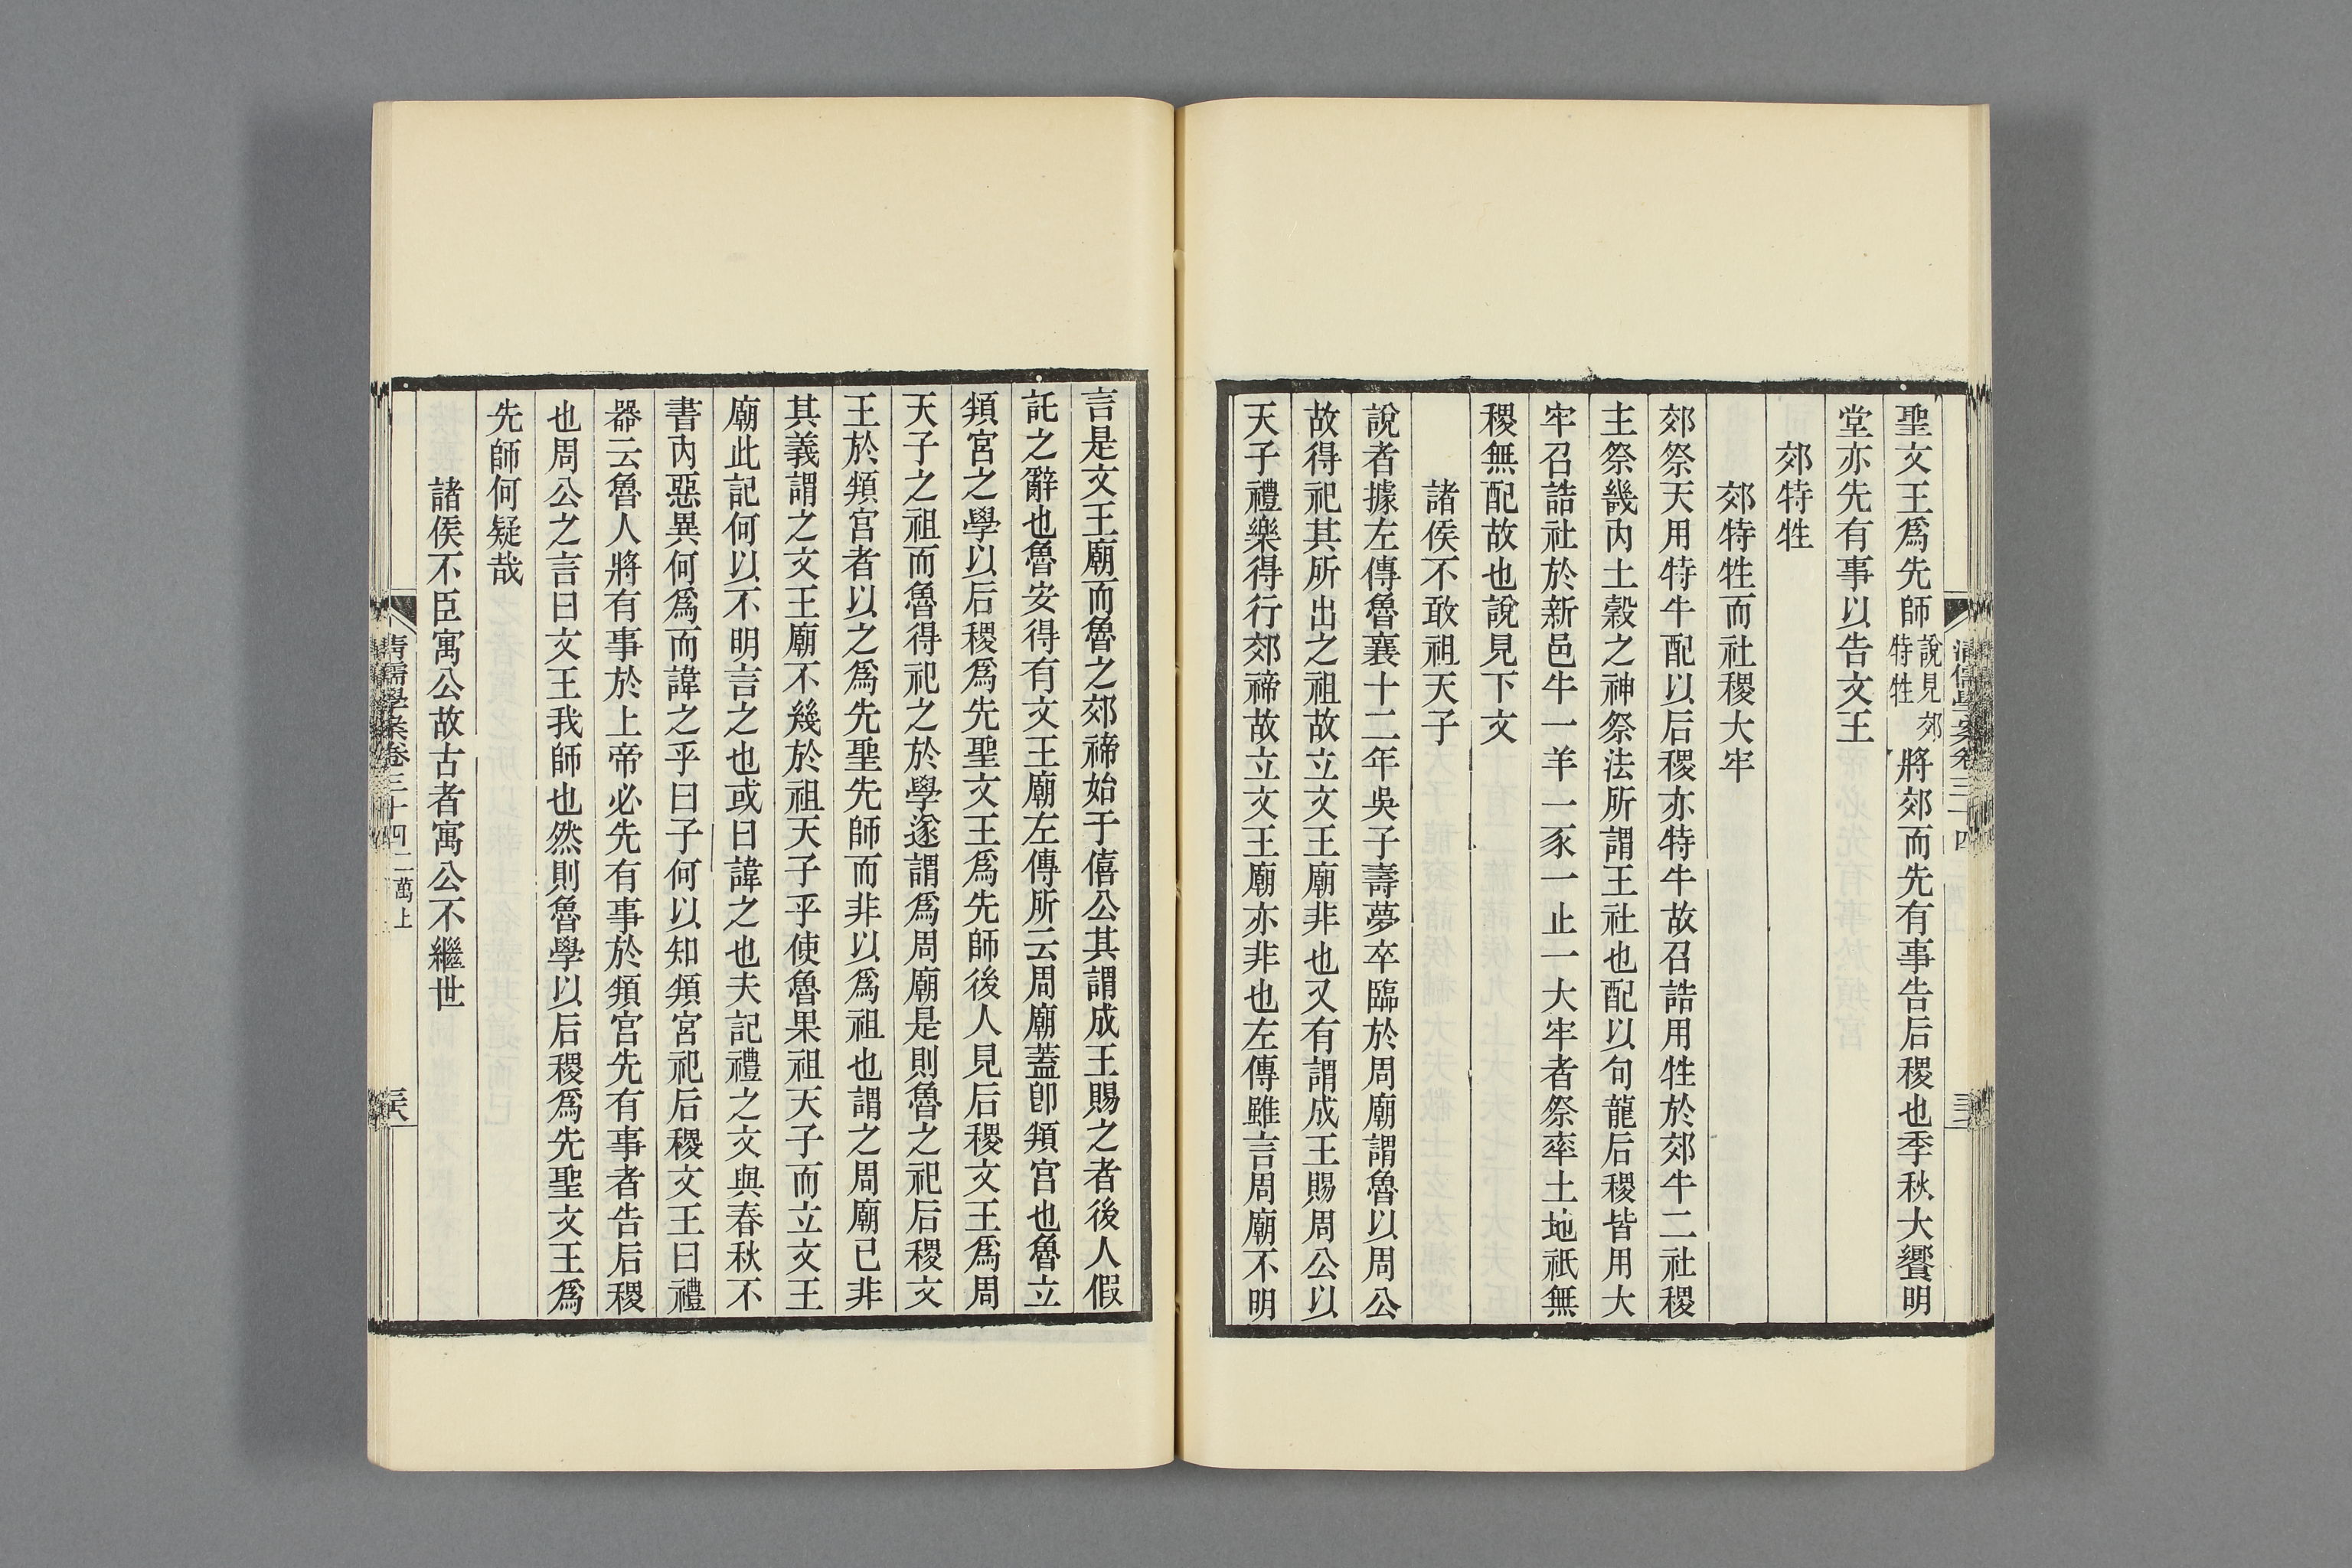 聖文王爲先師說見郊特牲將郊而先有事告后稷也季秋大饗明
堂亦先有事以告文王
郊特牲
郊特牲而社稷大牢
郊祭天用特牛配以后稷亦特牛故召誥用牲於郊牛二社稷
主祭畿內土穀之神祭法所謂王社也配以句龍后稷皆用大
牢召誥社於新邑牛一羊一豕一止一大牢者祭率土地祇無
稷無配故也說見下文
諸侯不敢祖天子
說者據左傳魯襄十二年吳子壽夢卒臨於周廟謂魯以周公
故得祀其所出之祖故立文王廟非也又有謂成王賜周公以
天子禮樂得行郊禘故立文王廟亦非也左傳雖言周廟不明
清儒學案卷三十四
言是文王廟而魯之郊禘始于僖公其謂成王賜之者後人假
託之辭也魯安得有文王廟左傳所云周廟蓋卽頖宮也魯立
頖宮之學以后稷爲先聖文王爲先師後人見后稷文王爲周
天子之祖而魯得祀之於學遂謂爲周廟是則魯之祀后稷文
王於頖宮者以之爲先聖先師而非以爲祖也謂之周廟已非
其義謂之文王廟不幾於祖天子乎使魯果祖天子而立文王
廟此記何以不明言之也或曰諱之也夫記禮之文與春秋不
書內惡異何爲而諱之乎曰子何以知頖宮祀后稷文王曰禮
器云魯人將有事於上帝必先有事於頖宮先有事者告后稷
也周公之言曰文王我師也然則魯學以后稷爲先聖文王爲
先師何疑哉
諸侯不臣寓公故古者寓公不繼世
清儒學案卷三十四二萬上